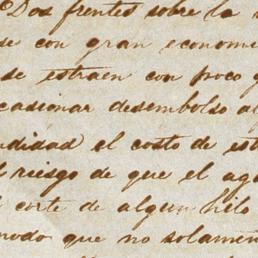 Dos frentes sobre la
se con gran econom
se estraen con poco
casionar desembolso al
ndidad el costo de est
l riesgo de que el ag
l corte de algun hilo
modo que no solamen